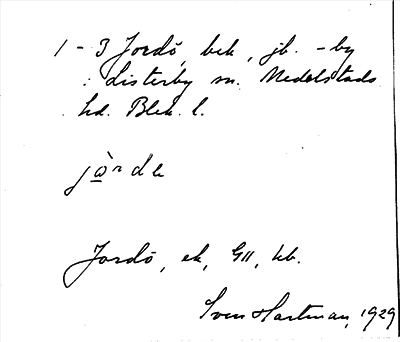 1-3 Jordö, bek, jb. -by
i Listerby sn. Medelstads
hd. Blek. l.
Jordö, ek, GII, kb.
Sven Hartman, 1929